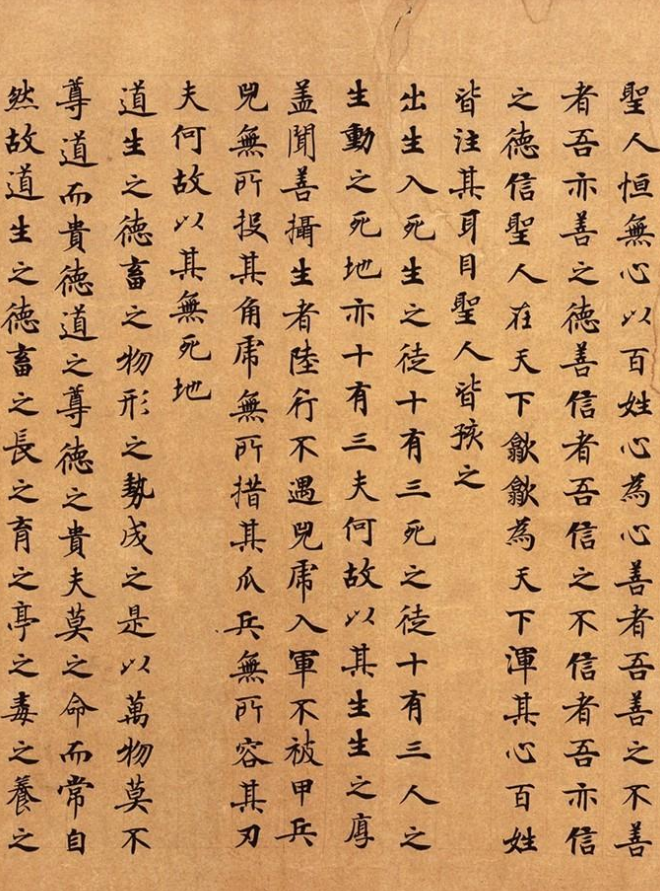 聖人恒無心以百姓心為心善者吾善之不善
者吾亦善之德善信者吾信之不信者吾亦信
之德信聖人在天下歙歙為天下渾其心百姓
皆注其耳目聖人皆孩之
出生入死生之徒十有三死之徒十有三人之
生動之死地亦十有三夫何故以其生生之厚
盖聞善攝生者陸行不遇兕虎入軍不被甲兵
兕無所投其角虎無所措其爪兵無所容其刃
夫何故以其無死地
道生之德畜之物形之勢成之是以萬物莫不
尊道而貴德道之尊德之貴夫莫之命而常自
然故道生之德畜之長之育之亭之毒之養之